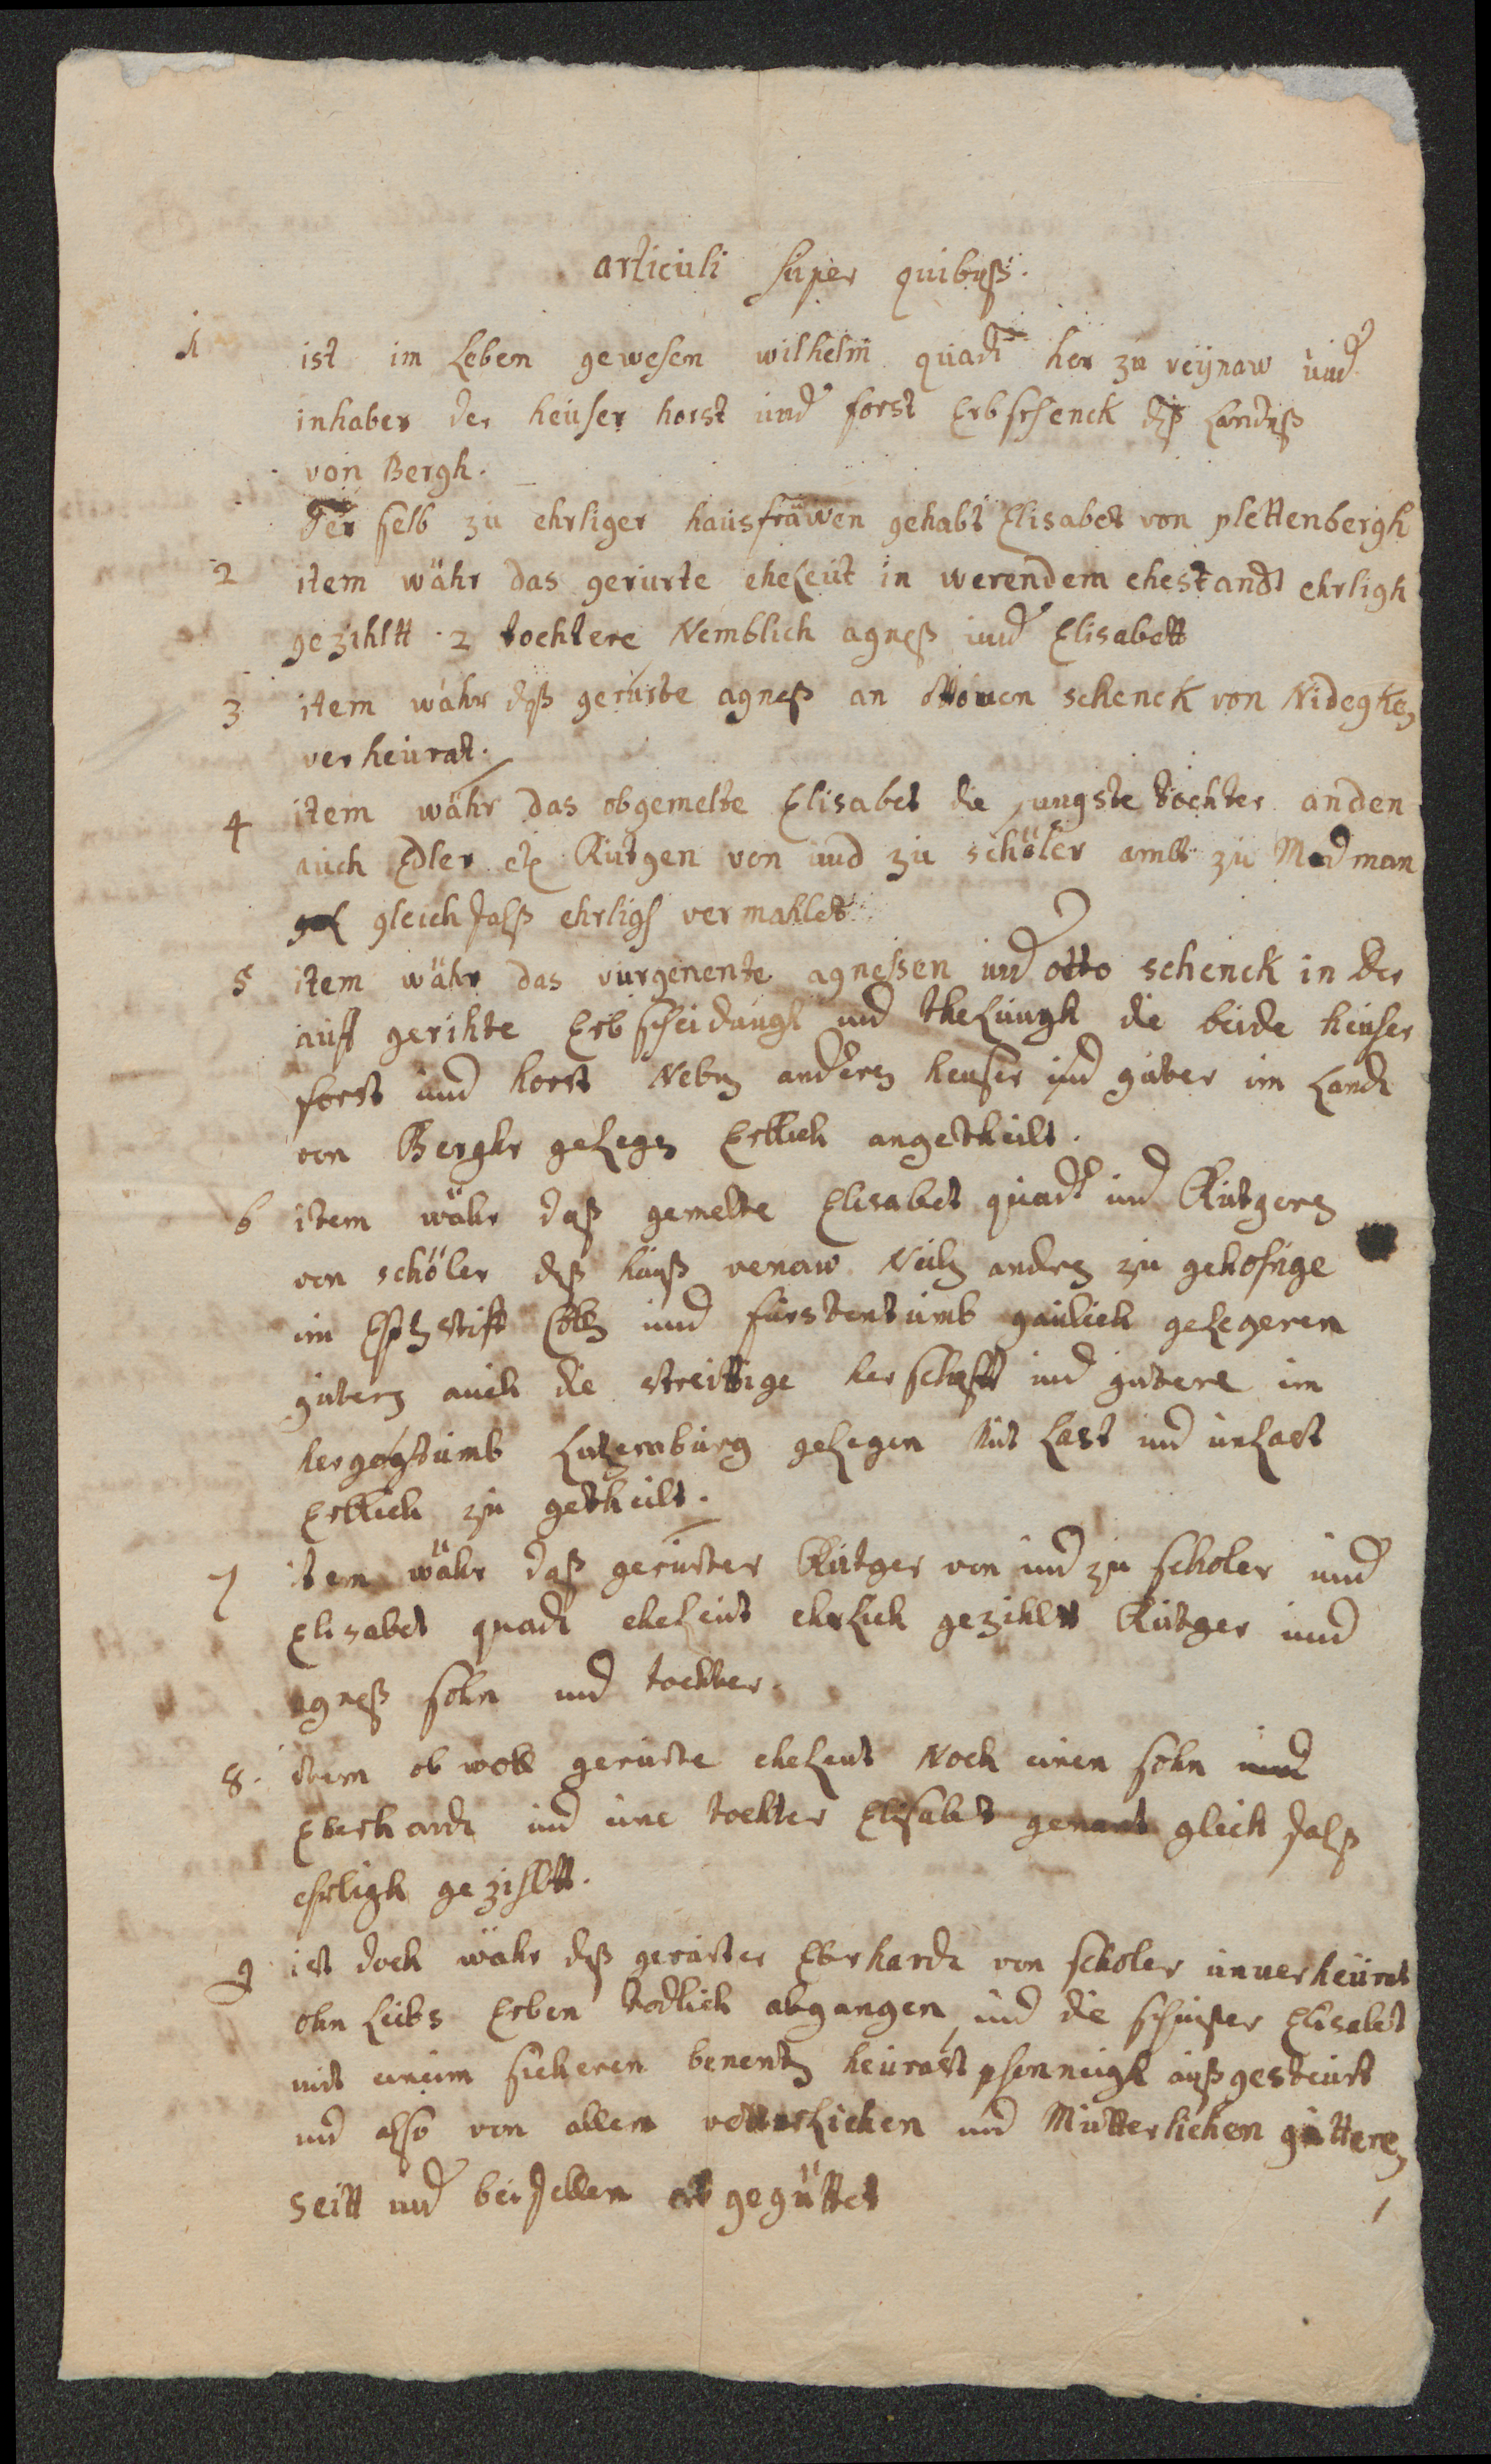 articuli super quibuß.
1 ist im Leben gewesen wilhelm quadt her zu veynaw und
inhaber der heuser horst und forst Erbschenck deß Landeß
von Bergh.
Der selb zu ehrliger hausfrawen gehabt Elisabet von plettenbergh
2 item wåhr das gerurte eheleut in werendem ehestandt ehrligh
gezihltt 2 tochtere Nemblich agneß und Elisabett
3 item wahr daß gerurte agneß an ottouen schenck von Nidegken
verheurat.
4 item währ das obgemelte Elisabet die jungste tochter an den
auch Edler etc Rutgen von und zu schöler ambt zu Medman
gleichfalß ehrligh vermahlet
5 item währ das vurgenente agnessen und otto schenck in der
auff gerihte Erbscheidungh und thelungh die beide heuser
forst und horst Neben anderen heuser und guter im Landt
von Berghe gelegen Erblich angetheilt.
6 item währ daß gemelte Elisabet quadt und Rutgeren
von schöler deß hauß venaw Nebn andren zu gehorige
im Ertzstift Cöln und furstentumb gaulich gelegeren
gutern auch die streittige herschafft und gutere im
hergogtumb Lutzemburg gelegen mit Last und unlast
Erblich zu getheilt.
7 item währ daß gerurter Rutger von und zu scholer und
Elisabet quadt eheleut ehrlich gezihlet Rutger und
agneß sohn und tochter.
8. item ob woll gerurte eheleut Noch einen sohn und
Eberhardt und eine tochter Elisabet genant gleich falß
ehrligh gezihltt.
9 ist doch währ deß gerurter Eberhardt von scholer unuerheurat
ohn Leibs Erben todlich abgangen, und die schwester Elisabet
mit eineim sicheren benenten heurast pfenningh außgesteurt
und also von allem vetterlichen und Mutterlichen guttere
seitt und beifellen gegüttet
1